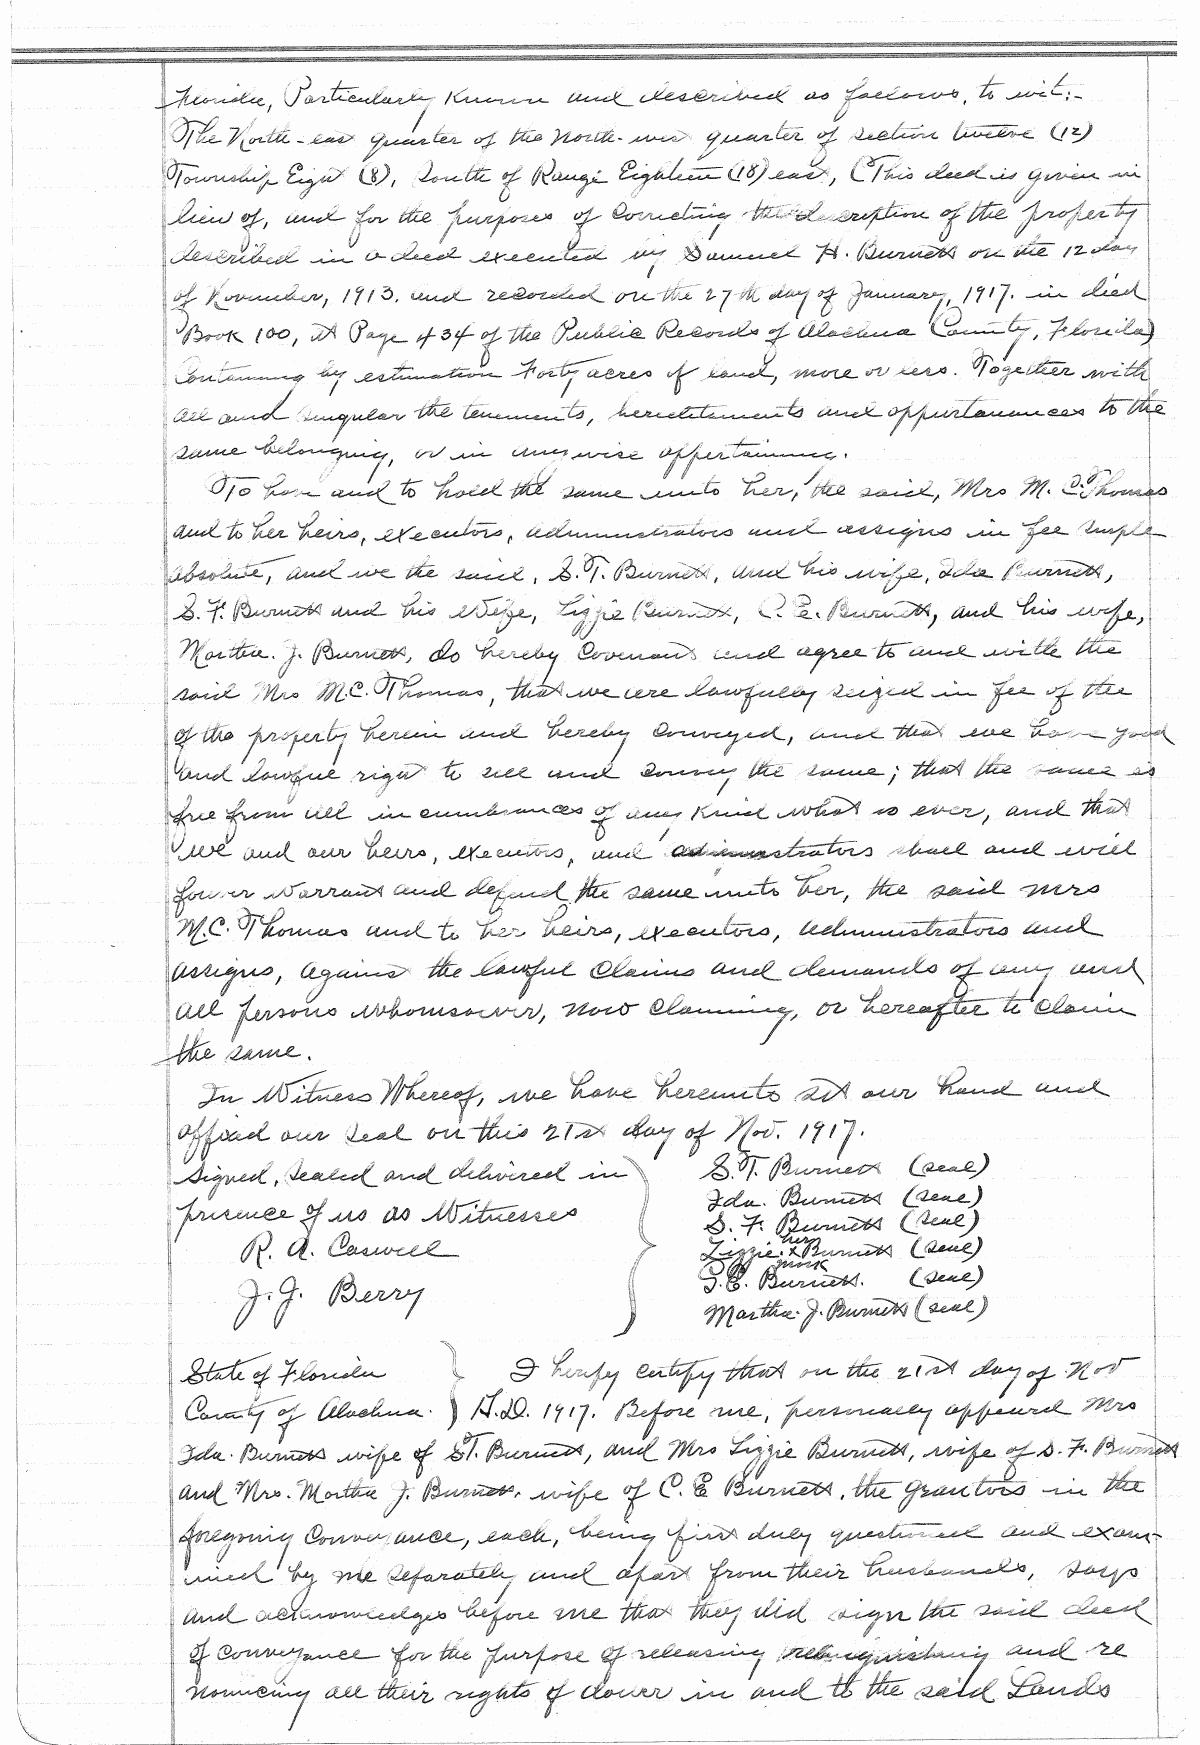 Florida, Particularly Known and described as follows, to wit:-
The North-east quarter of the North-west quarter of section twelve (12)
Township Eight (8), South of Range Eighteen (18) east, (This deed is given in
lieu of, and for the purposes of correcting the description of the property
described in a deed executed by Samuel H. Burnett on the 12 day
of November, 1913. and recorded on the 27th day of January, 1917. in deed
Book 100, at Page 434 of the Public Records of Alachua County, Florida)
Containing by estimation Forty acres of land, more or less. Together with
all and singular the tenements, hereditements and appurtanances to the
same belonging, or in anywise appertaining.
To have and to hold the same unto her, the said, Mrs M. C. Thomas
and to her heirs, executors, administrators and assigns in fee simple
absolute, and we the said, S. T. Burnett, and his wife, Ida Burnett,
S. F. Burnett and his Wife, Lizzie Burnett, C. E. Burnett, and his wife,
Martha. J. Burnett, do hereby Covenant and agree to and with the
said Mrs M.C. Thomas, that we are lawfully seized in fee of the
of the property herein and hereby conveyed, and that we have good
and lawful right to sell and convey the same; that the same is
free from all incumbrances of any kind what is ever, and that
we and our heirs, executors, and administrators shall and will
forever warrant and defend the same unto her, the said Mrs
M.C. Thomas and to her heirs, executors, administrators and
assigns, against the lawful claims and demands of any and
all persons whomsoever, now claiming, or hereafter to claim
the same.
In Witness Whereof, we have hereunto set our hand and
affixed our seal on this 21st day of Nov. 1917.
Signed, sealed and delivered in
presence of us as Witnesses
R. A. Caswell
J. J. Berry
S. T. Burnett (seal)
Ida. Burnett (seal)
S. F. Burnett (seal)
her
Lizzie. x Burnett (seal)
mark
C. E. Burnett. (seal)
Martha. J. Burnett (seal)
State of Florida
County of Alachua. } I herify certify that on the 21st day of Nov
A.D. 1917. Before me, personally appeared Mrs
Ida. Burnett wife of S.T. Burnett, and Mrs Lizzie Burnett, wife of S. F. Burnett
and Mrs. Martha J. Burnett, wife of C. E Burnett, the grantors in the
foregoing Conveyance, each, being first duly questioned and exam-
ined by me separately and apart from their husbands, says
and acknowledges before me that they did sign the said deed
of conveyance for the purpose of releasing relinquishing and re
nouncing all their rights of dower in and to the said Lands